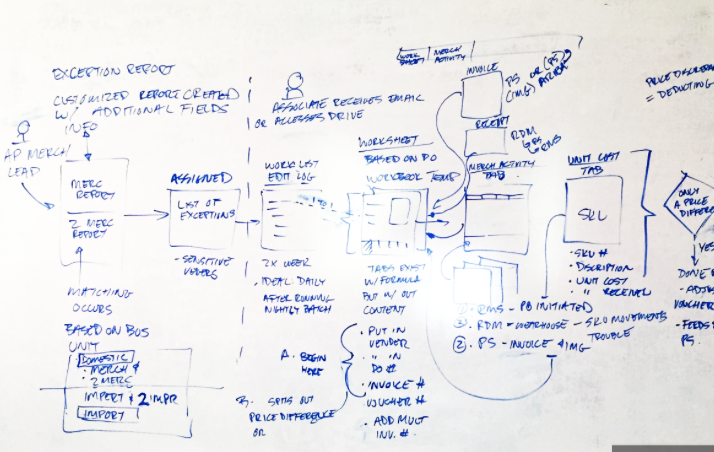 EXCEPTION REPORT
CUSTOMIZED REPORT CREATED
W/ ADDITIONAL FIELDS
INFO
AP MERCH
LEAD
MERC
REPORT
2 MERC
REPORT
MATCHING
OCCURS
BASED ON BUS
UNIT
DOMESTIC
MERCH &
2 MERC
IMPORT & 2 IMPR
IMPORT
ASSIGNED
LIST OF
EXCEPTIONS
- SENSITIVE
ASSOCIATE RECEIVES EMAIL
OR ACCESSES DRIVE
WORK LIST
EDIT LOG
2X WEEK
IDEAL DAILY
AFTER RUNNING
NIGHTLY BATCH
A. BEGIN
HERE
B. SPITS OUT
PRICE DIFFERENCE
OR
WORKSHEET
BASED ON PO
WORKBOOK TEMP
TABS EXIST
W/ FORMULA
BUT W/OUT
CONTENT
• PUT IN
VENDER
• " IN
PO #
• INVOICE #
VOUCHER #
• ADD MULT
INV. #
WORK
SHEET
MERCH
ACTIVITY
INVOICE
PS OR (PS)
(IMG)
RECEIPT
RDM
RMS
MERCH ACTIVITY
TAB
① RMS - PO INITIATED
② RDM - WAREHOUSE - SKU MOVEMENTS
TROUBLE
② PS - INVOICE & IMG
UNIT COST
TAB
SKU
• SKU #
• DISCRIPTION
• UNIT COST
• " RECEIVED
= DEDUCTING
ONLY
A PRICE
YES
- FEEDS
PS.